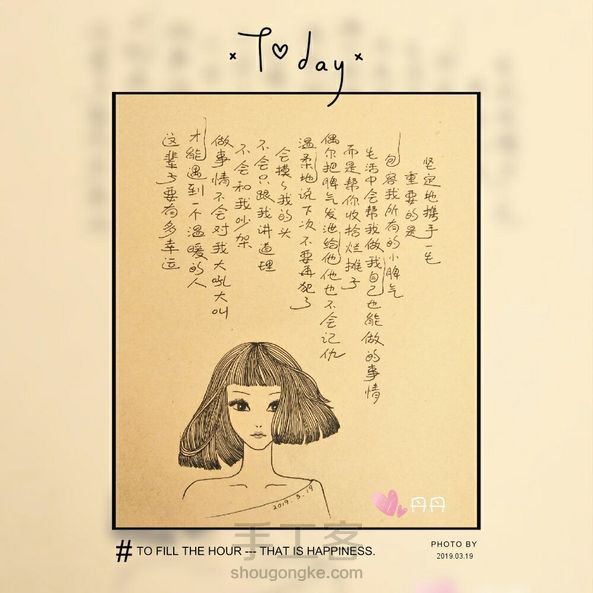 Today
这辈子要有多幸运
才能遇到一个温暖的人
做事情不会对我大吼大叫
不会和我吵架
不会只跟我讲道理
会摸々我的头
温柔地说下次不要再犯了
偶尔把脾气发泄给他他也不会记仇
而是帮你收拾烂摊子
生活中会帮我做我自己也能做的事情
包容我所有的小脾气
重要的是
坚定地携手一生
2019.3.19
丹丹
# TO FILL THE HOUR --- THAT IS HAPPINESS.
PHOTO BY
2019.03.19
手工客
shougongke.com